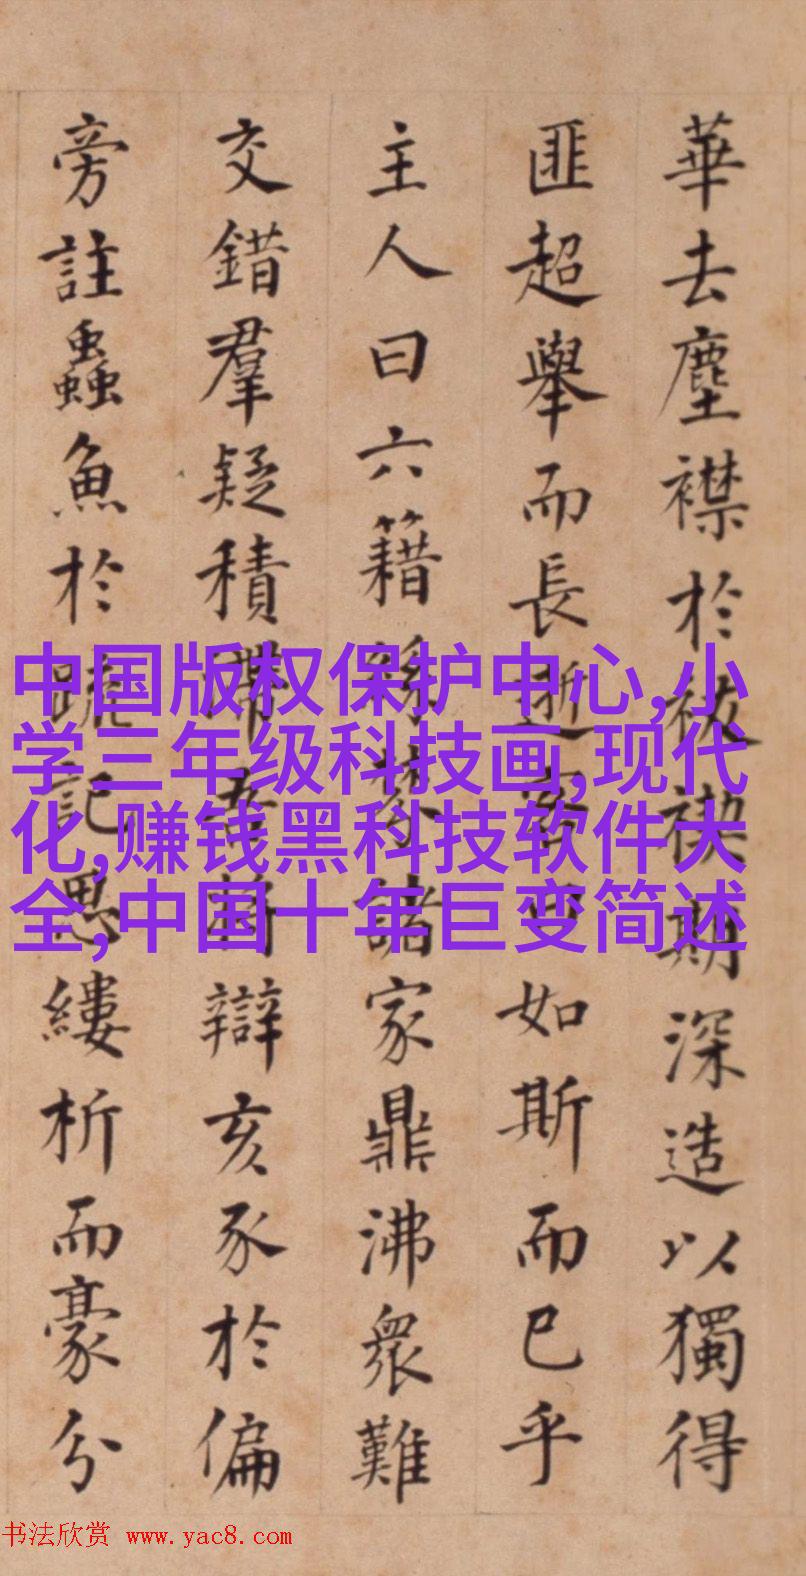 華去塵襟於祓禊期深造以獨得
匪超舉而長逝如斯而已乎
主人曰六籍諸家鼎沸衆難
交錯羣疑積滯將辯亥豕於偏
旁註蟲魚於疏記思縷析而豪分
中国版权保护中心,小
学三年级科技画,现代
化,赚钱黑科技软件大
全,中国十年巨变简述
书法欣赏 www.yac8.com